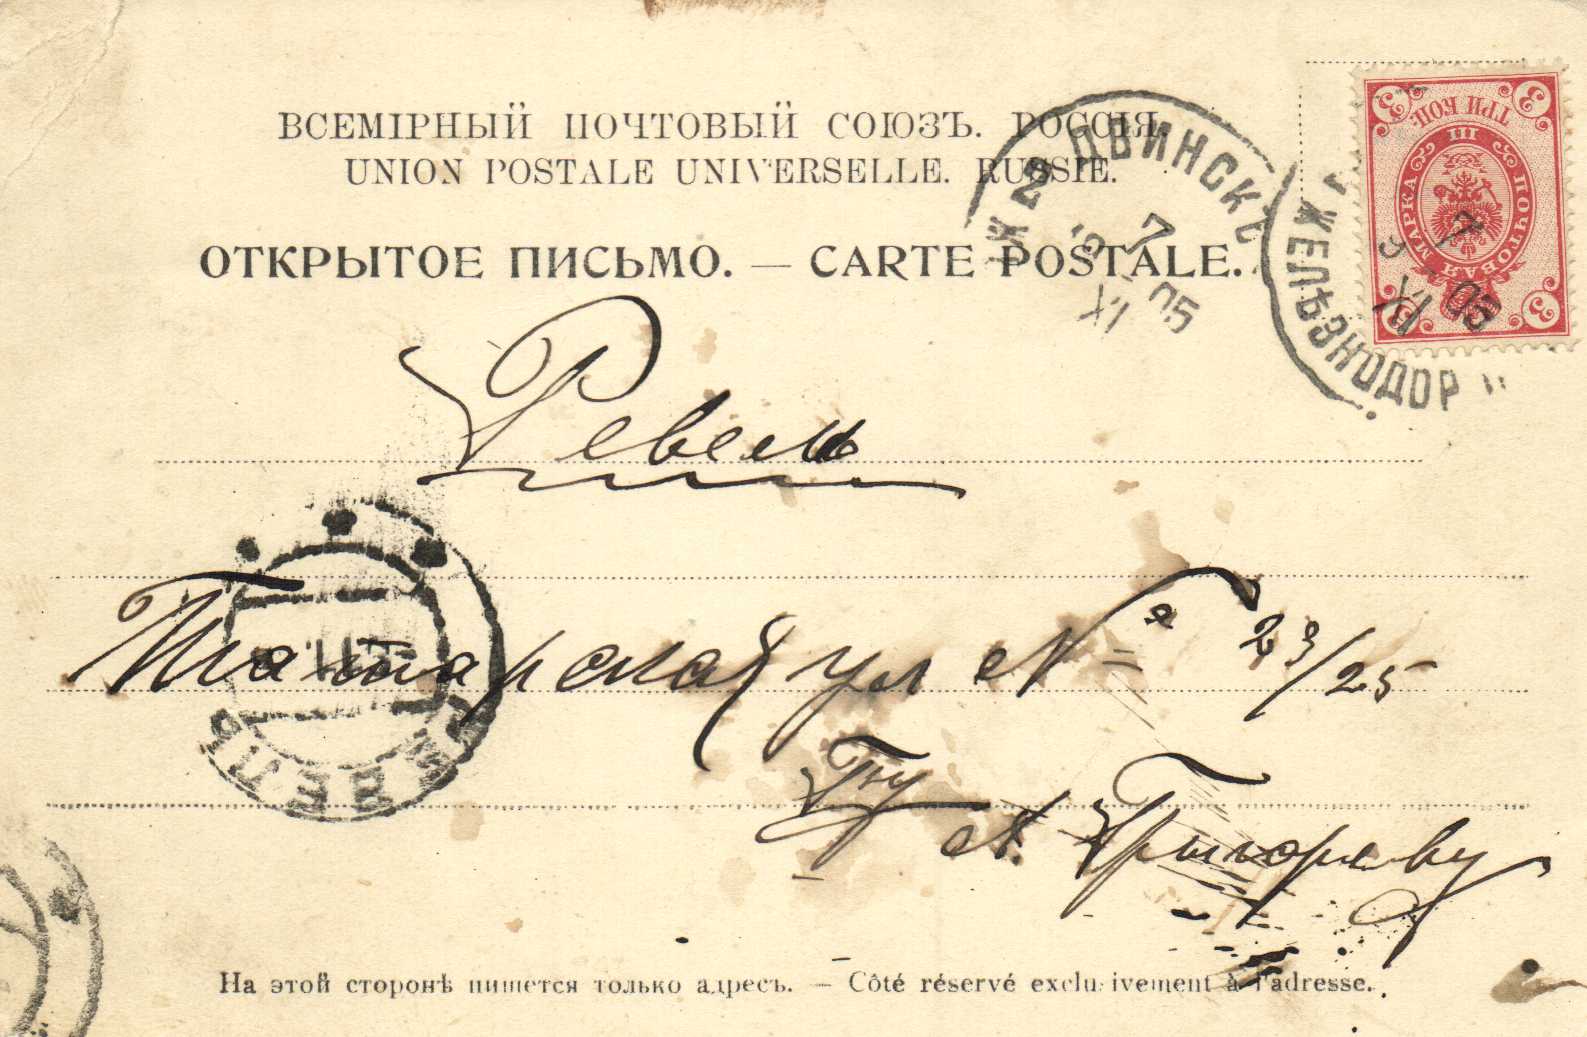 ВСЕМІРНЫЙ ПОЧТОВЫЙ СОЮЗЪ. РОССІЯ.
UNION POSTALE UNIVERSELLE. RUSSIE.
ОТКРЫТОЕ ПИСЬМО. — CARTE POSTALE.
2 ДВИНСКЪ
7 XI 05
ЖЕЛѢЗНОДОР
7 XI 05
3 ТРИ КОП. 3
ПОЧТОВАЯ МАРКА
3 3
Ревель
Татарская ул № 23/25
Гну А. Григорьеву
РЕВЕЛЬ
На этой сторонѣ пишется только адресъ. — Côté réservé exclusivement à l'adresse.